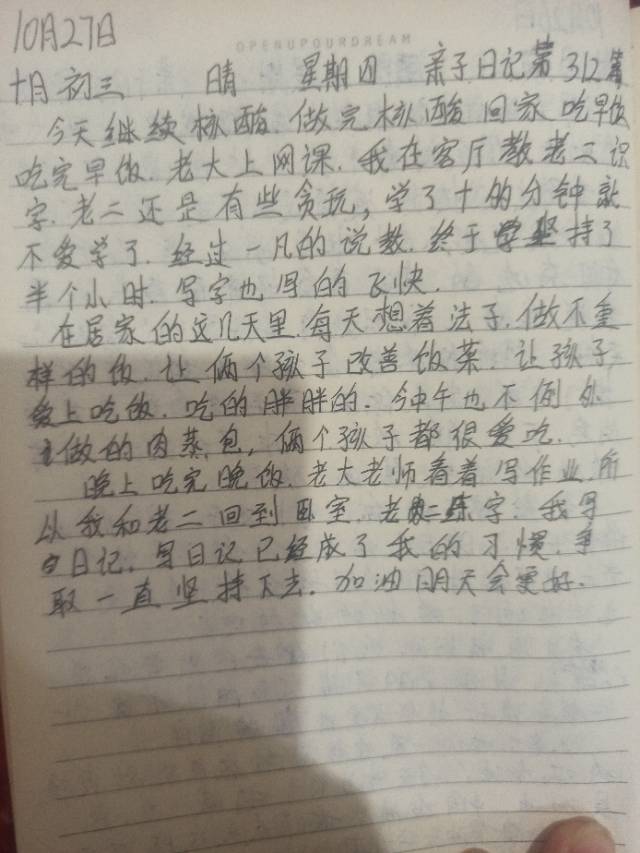 10月27日
OPENUPYOURDREAM
十月初三 晴 星期四 亲子日记第312篇
今天继续核酸.做完核酸回家吃早饭
吃完早饭.老大上网课.我在客厅教老二识
字.老二还是有些贪玩,学了十的分钟就
不爱学了.经过一凡的说教.终于坚持了
半个小时.写字也写的飞快.
在居家的这几天里.每天想着法子.做不重
样的饭.让俩个孩子改善饭菜.让孩子
爱上吃饭.吃的胖胖的.今中午也不例外
做的肉蒸包,俩个孩子都很爱吃.
晚上吃完晚饭.老大老师看着写作业.所
以我和老二回到卧室.老二练字.我写
日记.写日记已经成了我的习惯.争
取一直坚持下去.加油明天会更好.